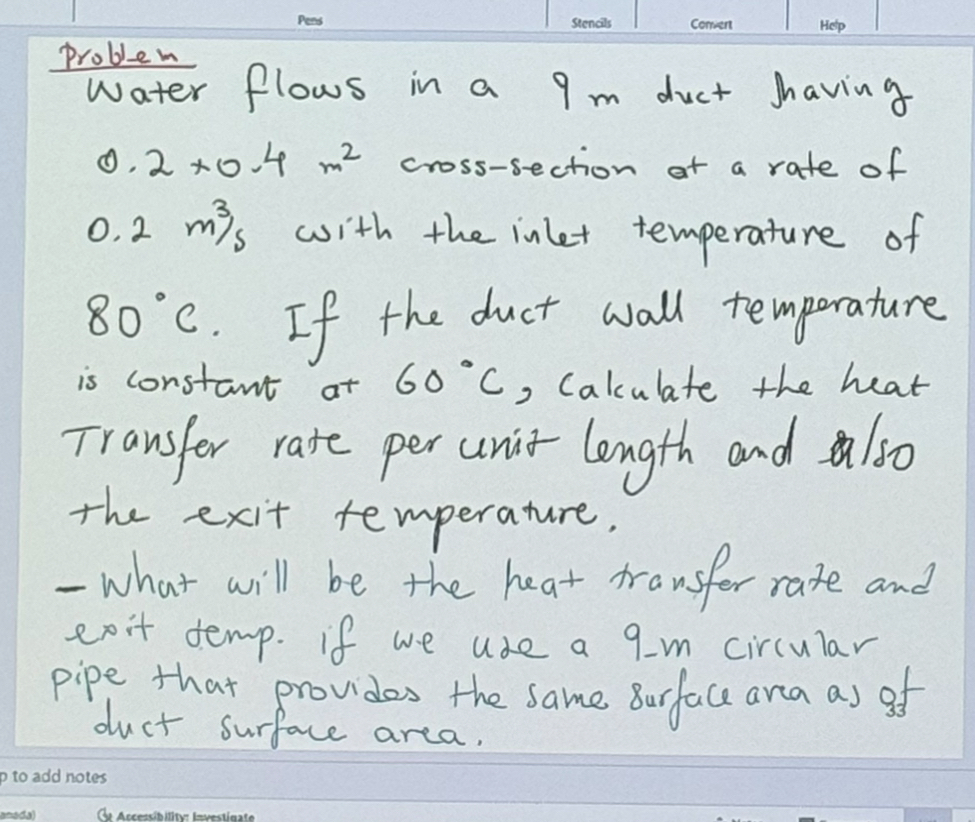 Pens Stencils Convert Help
Problem
Water flows in a 9 m duct having
0.2 × 0.4 m² cross-section at a rate of
0.2 m³/s with the inlet temperature of
80°C. If the duct wall temperature
is constant at 60°C, Calculate the heat
Transfer rate per unit length and also
the exit temperature.
- What will be the heat transfer rate and
exit temp. if we use a 9-m circular
pipe that provides the same surface area as of
duct surface area.
33
p to add notes
anada) Accessibility: Investigate